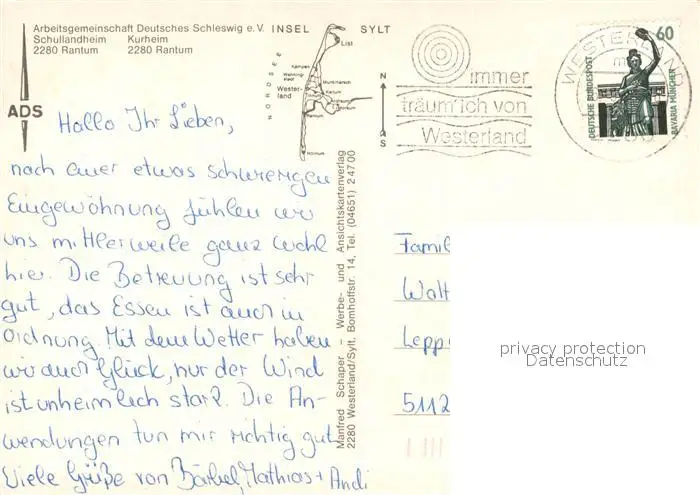 Arbeitsgemeinschaft Deutsches Schleswig e.V.
Schullandheim Kurheim
2280 Rantum 2280 Rantum
ADS
INSEL SYLT
List
Kampen
Munkmarsch
Wester-
land
Keitum
Rantum
Hörnum
NORDSEE
N
S
immer
träum' ich von
Westerland
WESTERLAND
60
DEUTSCHE BUNDESPOST
BAVARIA MÜNCHEN
Hallo Ihr Lieben,
nach einer etwas schwierigen
Eingewöhnung fühlen wir
uns mittlerweile ganz wohl
hier. Die Betreuung ist sehr
gut, das Essen ist auch in
Ordnung. Mit dem Wetter haben
wir auch Glück, nur der Wind
ist unheimlich stark. Die An-
wendungen tun mir richtig gut
Viele Grüße von Bärbel, Mathias + Andi
Manfred Schaper - Werbe- und Ansichtskartenverlag
2280 Westerland/Sylt, Bomhoffstr. 14, Tel. (04651) 2 47 00
Famil
Walt
Lepp
5112
privacy protection
Datenschutz